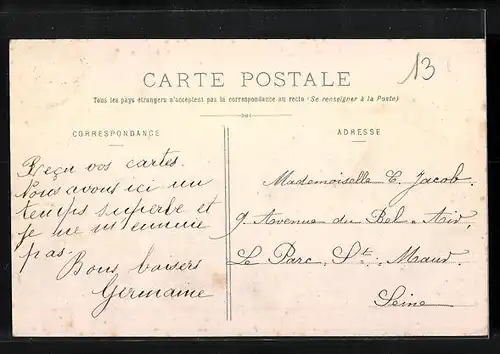 13
CARTE POSTALE
Tous les pays étrangers n'acceptent pas la correspondance au recto (Se renseigner à la Poste)
CORRESPONDANCE
Reçu vos cartes.
Nous avons ici un
temps superbe et
je ne m'ennui
pas.
Bons baisers
Germaine
ADRESSE
Mademoiselle C. Jacob.
9. Avenue du Bel-Air,
Le Parc, St. Maur.
Seine